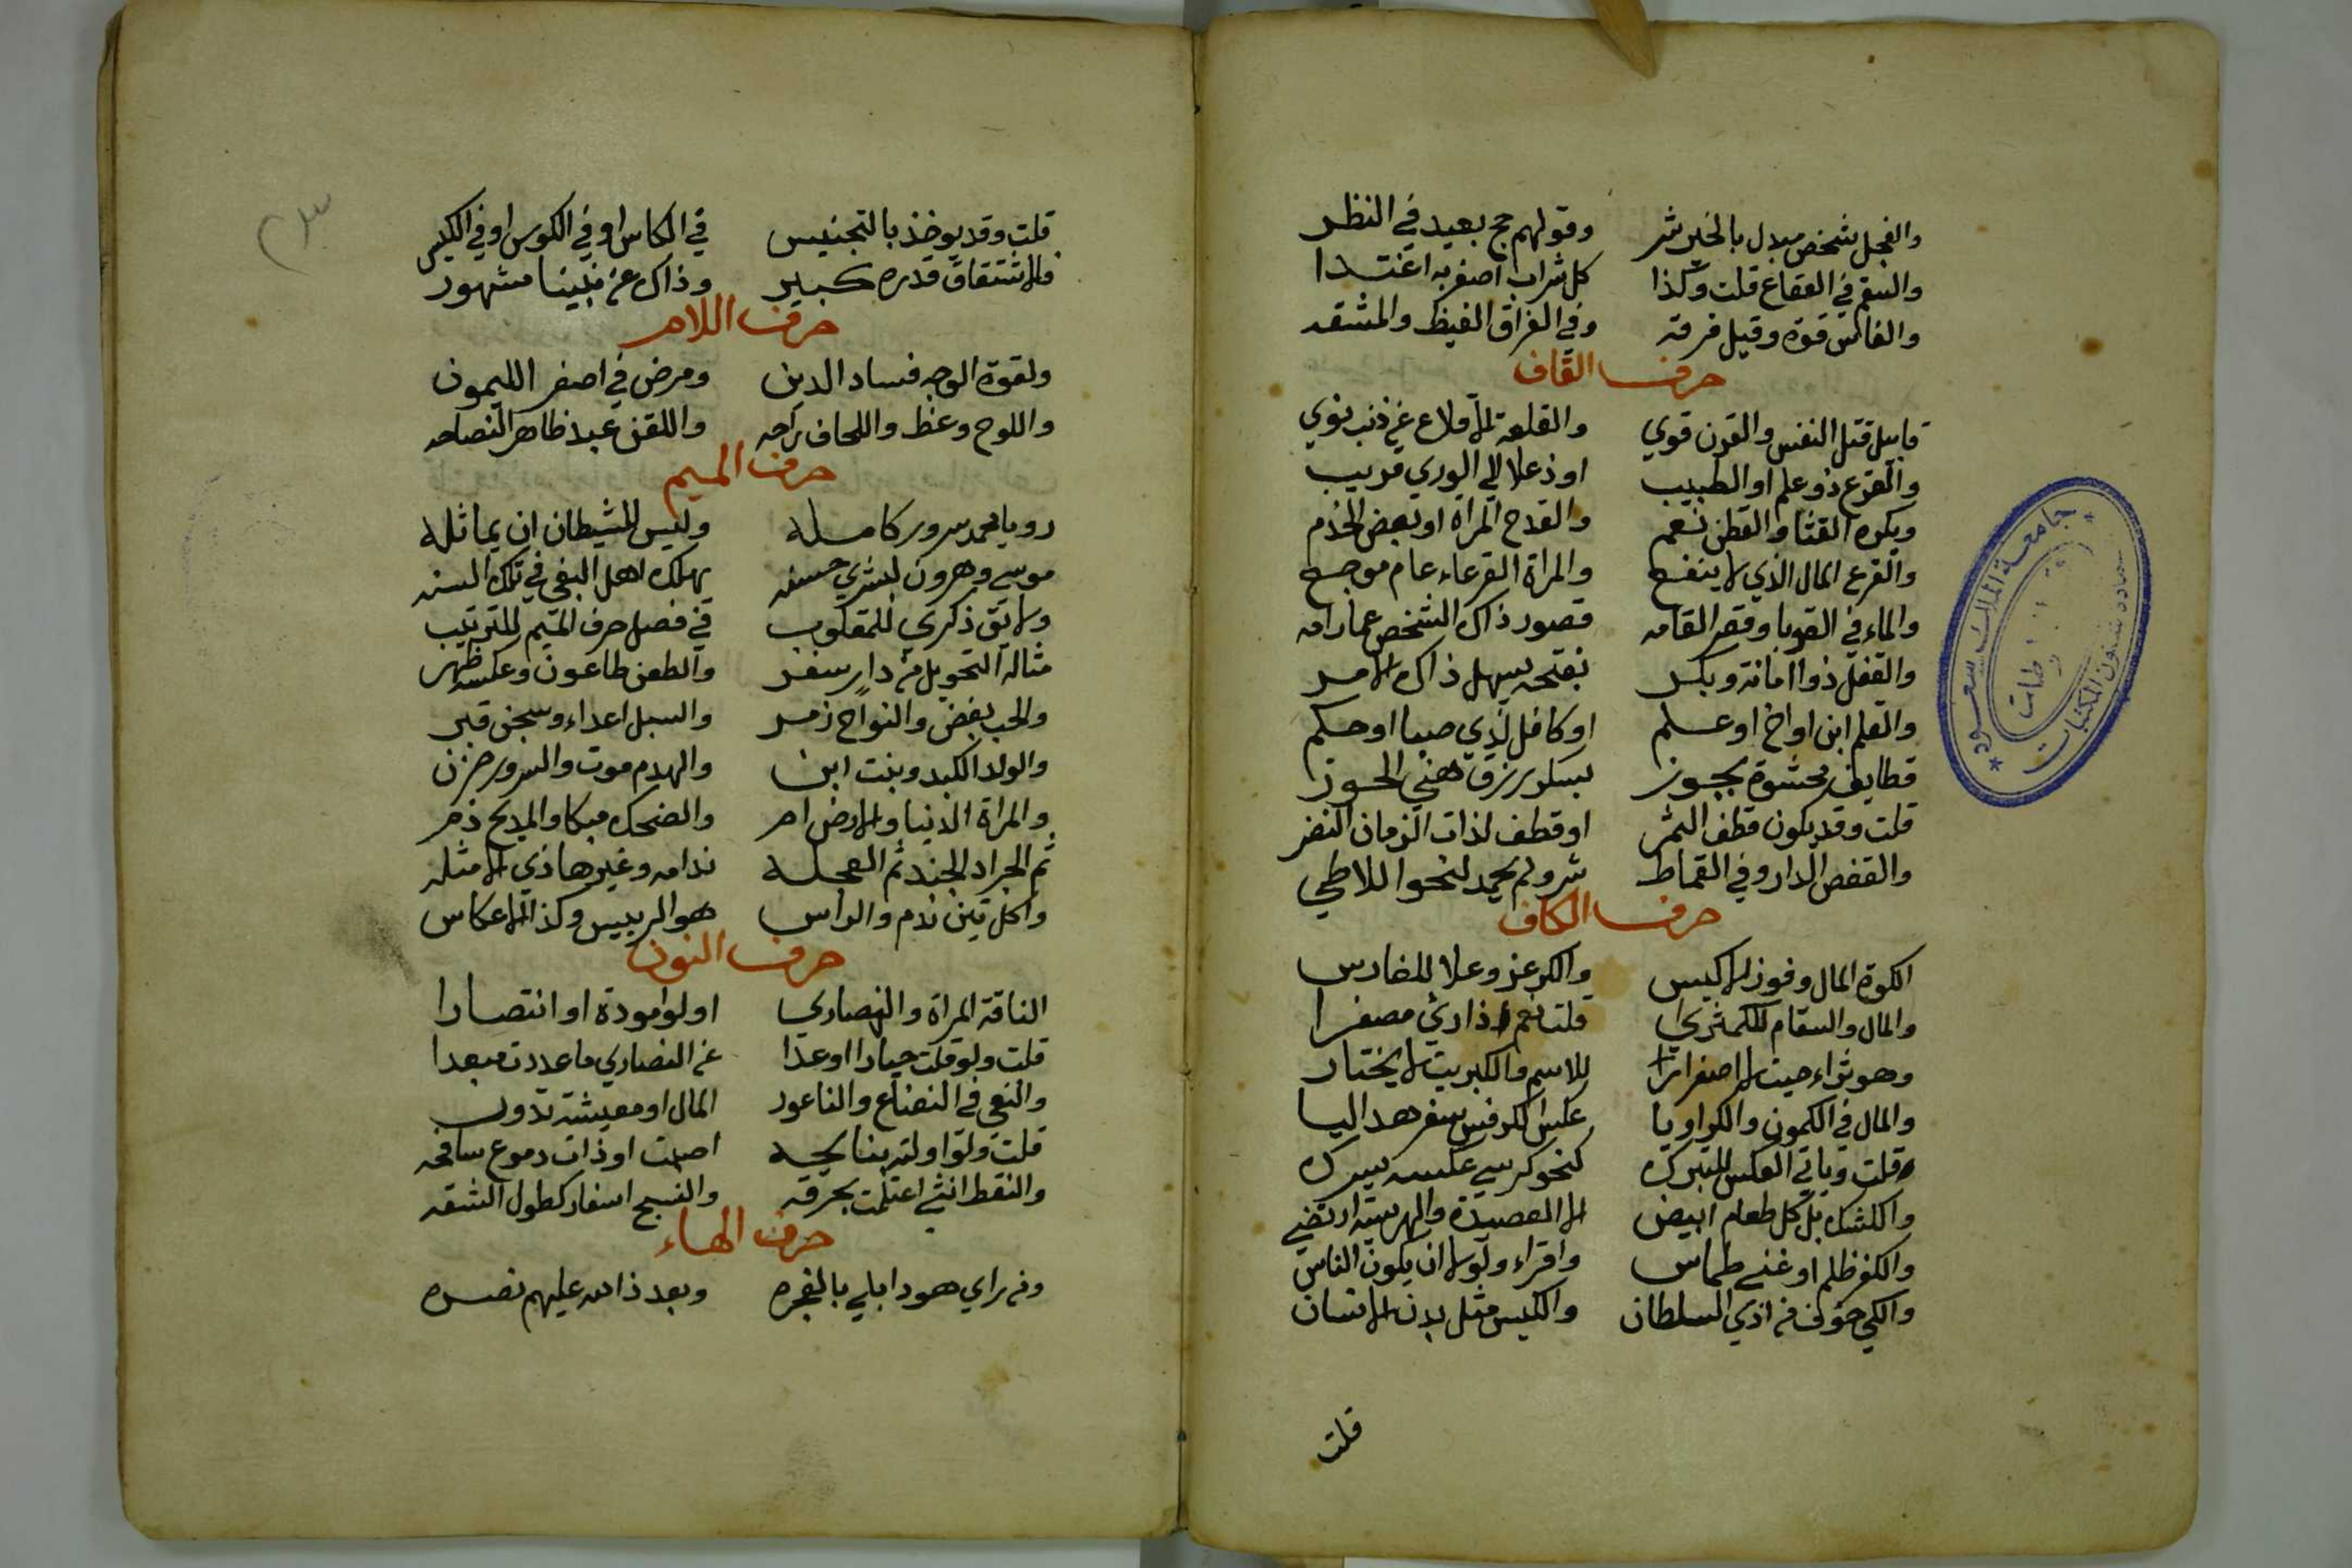 والفجل شخص مبدل بالخير شر وقولهم حج بعيد في النظر
والسقم في الفقاع قلت وكذا كل شراب اصفر به اغتدا
والفالس قوة وقيل فرقه وفي الفراق الغيظ والمشقه
حرف القاف
قابيل قتل النفس والقرن قوي والقلعة الاقلاع عن ذنب نوي
والقرع ذو علم او الطبيب اوذ علا الي الوري قريب
ويكره القثا والقطن نعم والقدح المراة او بعض الخدم
والقرع المال الذي لا ينفع والمراة القرعاء عام موجع
والماء في القوبا وقصر القامه قصور ذاك الشخص عما رامه
والقفل ذو امانة وبكر بفتحه يسهل ذاك الامر
والقلم ابن او اخ او علم او كافل لذي صبا او حكم
قطايف محشوة بجوز بسكر رزق هني الحوز
قلت وقد يكون قطف الثمر او قطف لذات الزمان النضر
والقفص الدار وفي القماط شر ولم يحمد لنحو اللاطي
حرف الكاف
الكوة المال وفوز الاكيس والكرعز وعلا للغارس
والمال والسقام للكمثري قلت نعم اذا رئي مصفرا
وهو ثراء حيث لا اصفرارا للاسم والكبريت لا يختار
والمال في الكمون والكراويا عكس الكرفس سفر هد اليا
قلت وياتي العكس للتبرك كنحو كرسي عكسه يسرك
والكشك بل كل طعام ابيض لا العصيدة والهريسة ارتضي
والكفر ظلم او غني طماس واقراء ولولا ان يكون الناس
والكي خوف من اذي السلطان والكيس مثل بدن الانسان
قلت
قلت وقد يوخذ بالتجنيس في الكاس او في الكوس او في الكيس
فالاشتقاق قدره كبير وذاك عن نبينا مشهور
حرف اللام
ولقوة الوجه فساد الدين ومرض في اصفر الليمون
واللوح وعظ واللحاف راحه واللقن عبد ظاهر النصاحه
حرف الميم
رويا محمد سرور كامله وليس للشيطان ان يماثله
موسي وهرون لبشري حسنه يهلك اهل البغي في تلك السنه
ولا تق ذكري للمقلوب في فصل حرف الميم للترتيب
مثاله التحويل من دار سفر والطعن طاعون وعكسه ظهر
والحب بغض والنواح زمر والسبل اعداء وسجن قبر
والولد الكبد وبنت ابن والهدم موت والسرور حزن
والمراة الدنيا والارض ام والضحك مبكا والمديح ذم
ثم الجراد الجند ثم العجله ندامه وغير هاذي الامثله
واكل تين ندم والراس هو الرييس وكذا الاعكاس
حرف النون
الناقة المراة والنصاري اولوا مودة او انتصارا
قلت ولو قلت حيارا او عدا عن النصاري ما عددت مبعدا
والنعي في النعناع والناعور المال او معيشة تدور
قلت ولو اولته بنايحه اصبت او ذات دموع سافحه
والنقط انثي اعتلت بحرقه والنسج اسفار كطول الشقه
حرف الهاء
ومن راي هودا بلي بالفجره وبعد ذا الله عليهم نصره
جامعة الملك سعود
عمادة شئون المكتبات